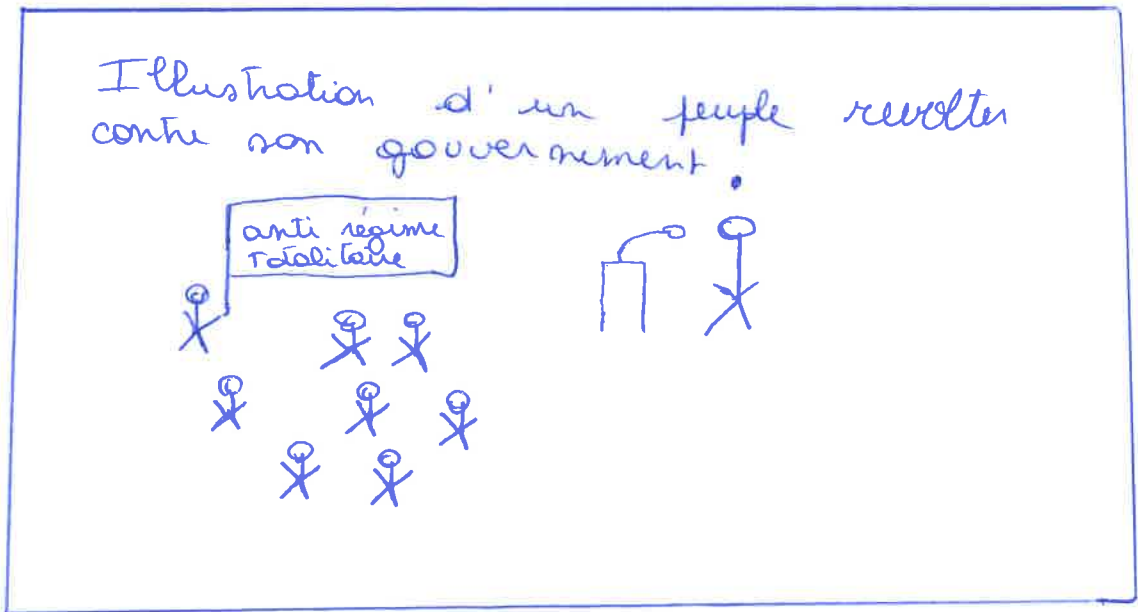 Illustration d'un peuple revolter
contre son gouvernement.
anti régime
Totalitaire